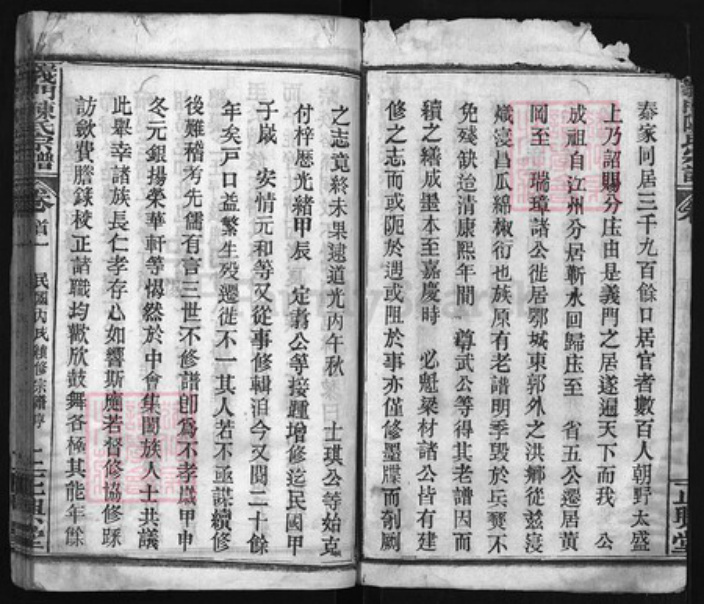 秦家同居三千九百餘口居官者數百人朝野太盛
上乃詔賜分庄由是義門之居遂遍天下而我　公
成祖自江州分居蘄水回歸庄至　省五公遷居黃
岡至　瑞璋諸公徙居鄂城東郭外之洪鄉從茲寖
熾寖昌瓜綿椒衍也族原有老譜明季毀於兵燹不
免殘缺迨清康熙年間　尊武公等得其老譜因而
續之繕成墨本至嘉慶時　必魁梁材諸公皆有建
修之志而或阨於遇或阻於事亦僅修墨牒而剞劂
之志竟終未果逮道光丙午秋　士琪公等始克
付梓歷光緒甲辰　定翥公等接踵增修迄民國甲
子歲　安情元和等又從事修輯洎今又閱二十餘
年矣戸口益繁生歿遷徙不一其人若不亟謀續修
後難稽考先儒有言三世不修譜卽爲不孝歲甲申
冬元銀揚榮華軒等惕然於中會集閤族人士共議
此舉幸諸族長仁孝存心如響斯應若督修協修採
訪斂費謄錄校正諸職均歡欣鼓舞各極其能年餘
義門陳氏宗譜
卷首一
民國丙戌續修宗譜序
正興堂